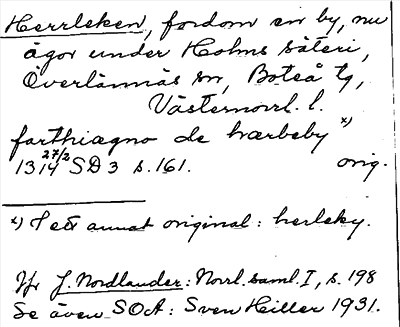 Herrleken, fordom en by, nu
ägor under Holms säteri,
Överlännäs sn, Boteå tg,
Västernorrl. l.
farthiægno de hærbeby x)
13 27/2 14 SD 3 s. 161. orig.
x) I ett annat original: herleby.
Jfr J. Nordlander: Norrl. saml. I, s. 198
Se även SOA: Sven Hiller 1931.